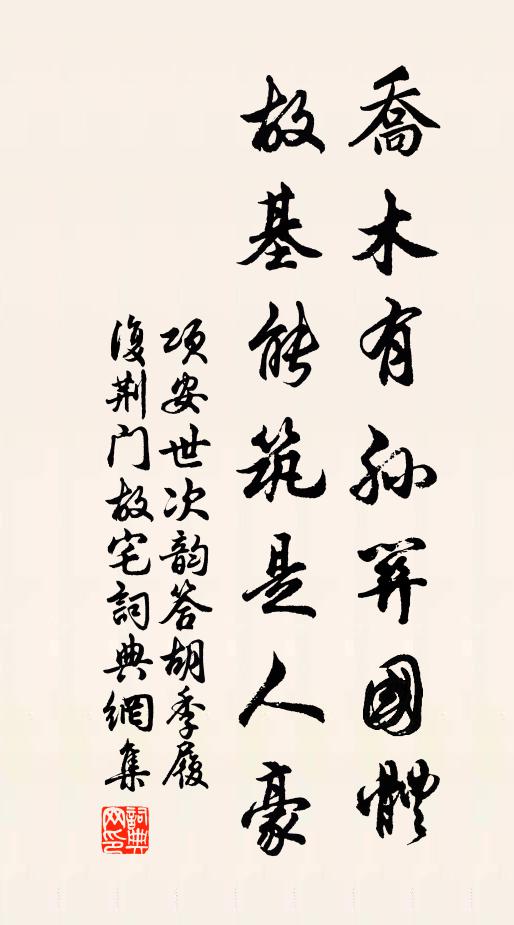 喬木有孫關國體
故基能筑是人豪
項安世次韵答胡季履
復荆门故宅詞典網集
詞典
网印